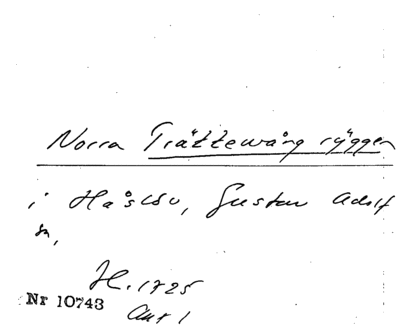 Norra Trättewång ryggen
i Håslöv, Gustav Adolf
sn,
H. 1725
Nr 10743
Akt 1